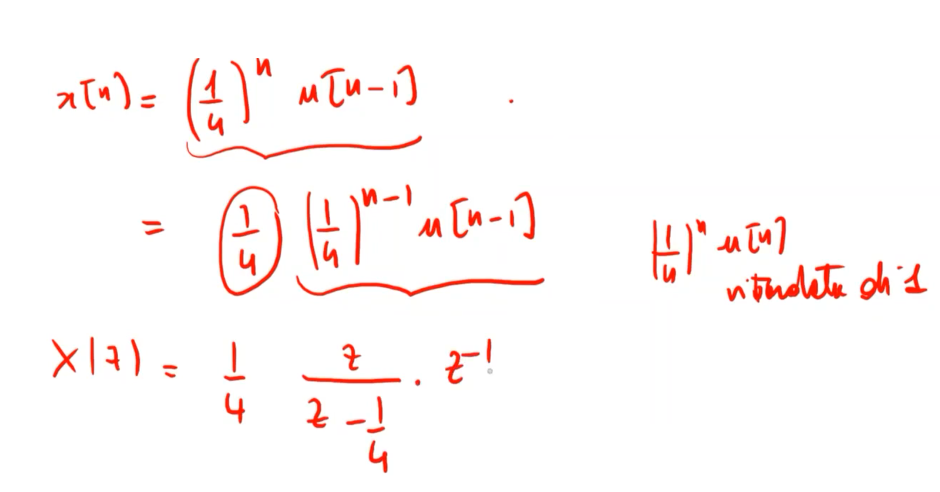 x[n] = (1/4)^n u[n-1]
= (1/4) (1/4)^{n-1} u[n-1]
(1/4)^n u[n]
ritardata di 1
X(z) = 1/4 z/(z - 1/4) · z^{-1}